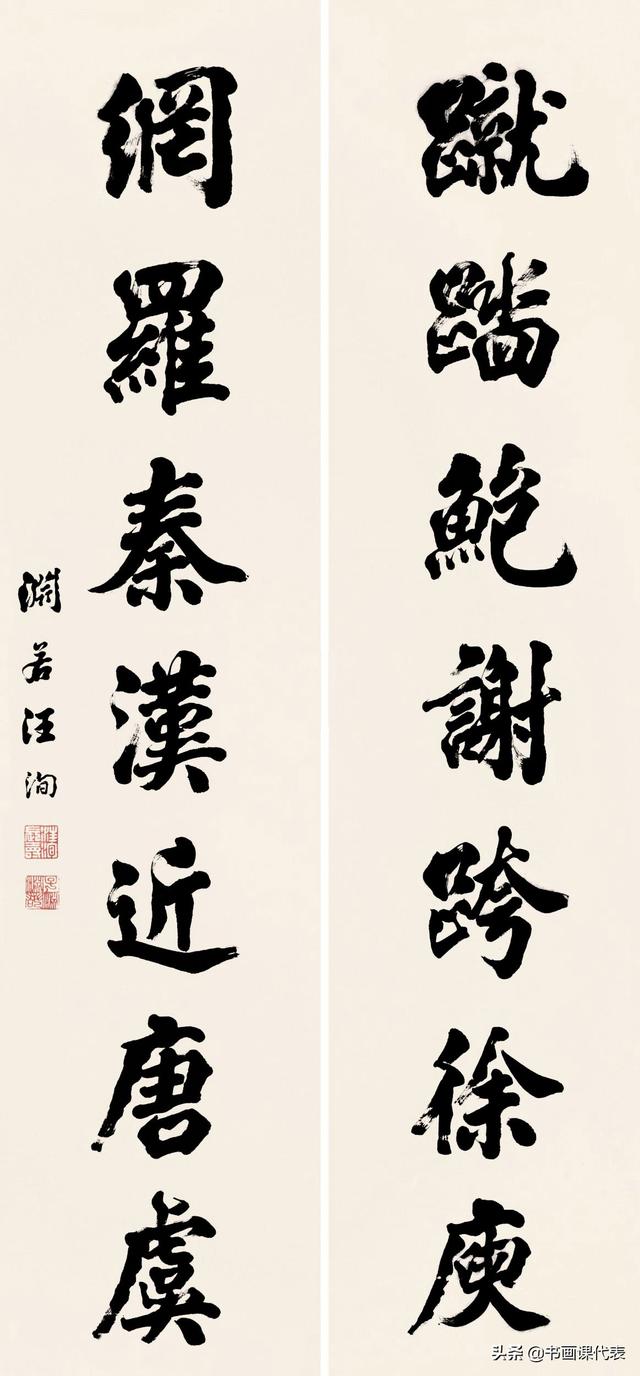 蹴踏鮑謝跨徐庾
網羅秦漢近唐虞
淵若汪洵
头条 @书画课代表